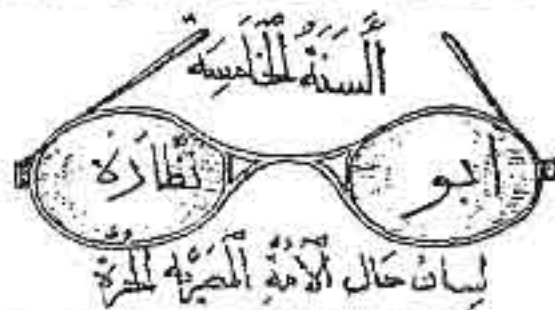 السَنَةُ الخَامِسَة
ابو نَظَّارَة
لِسان حَال الأُمَّةِ المَصرِيَّه الحُرَّة